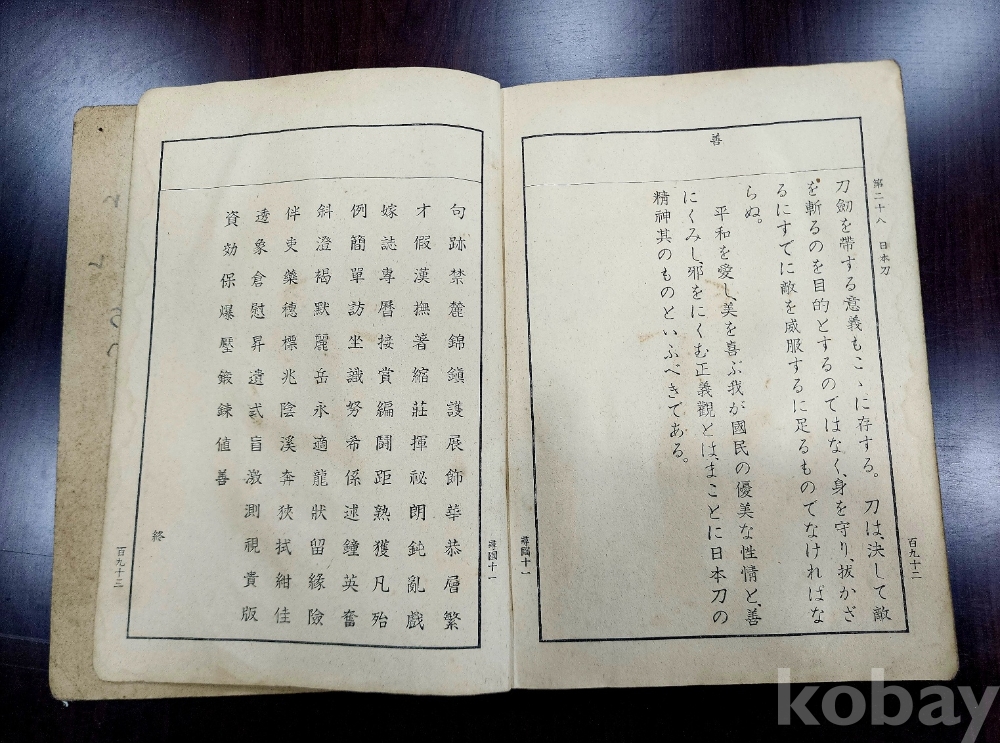 第二十八 日本刀
善
刀劒を帶する意義もこゝに存する。刀は、決して敵
を斬るのを目的とするのではなく、身を守り、拔かざ
るにすでに敵を威服するに足るものでなければな
らぬ。
平和を愛し、美を喜ぶ我が國民の優美な性情と、善
にくみし、邪をにくむ正義觀とは、まことに日本刀の
精神其のものといふべきである。
百九十二
尋國十一
句跡禁麓錦鎭護展飾華恭層繁
才假漢撫著縮莊揮祕朗鈍亂戲
嫁誌專曆接賞編鬪距熟獲凡殆
例簡單訪坐識努希係述鐘英奮
斜澄褐默麗岳永適龍狀留緣險
伴吏藥穗標兆陰溪奔狹拭紺佳
透象倉慰昇遺貳盲激測視貴版
資效保爆壓鍛鍊値善
終
尋國十一
百九十三
kobay